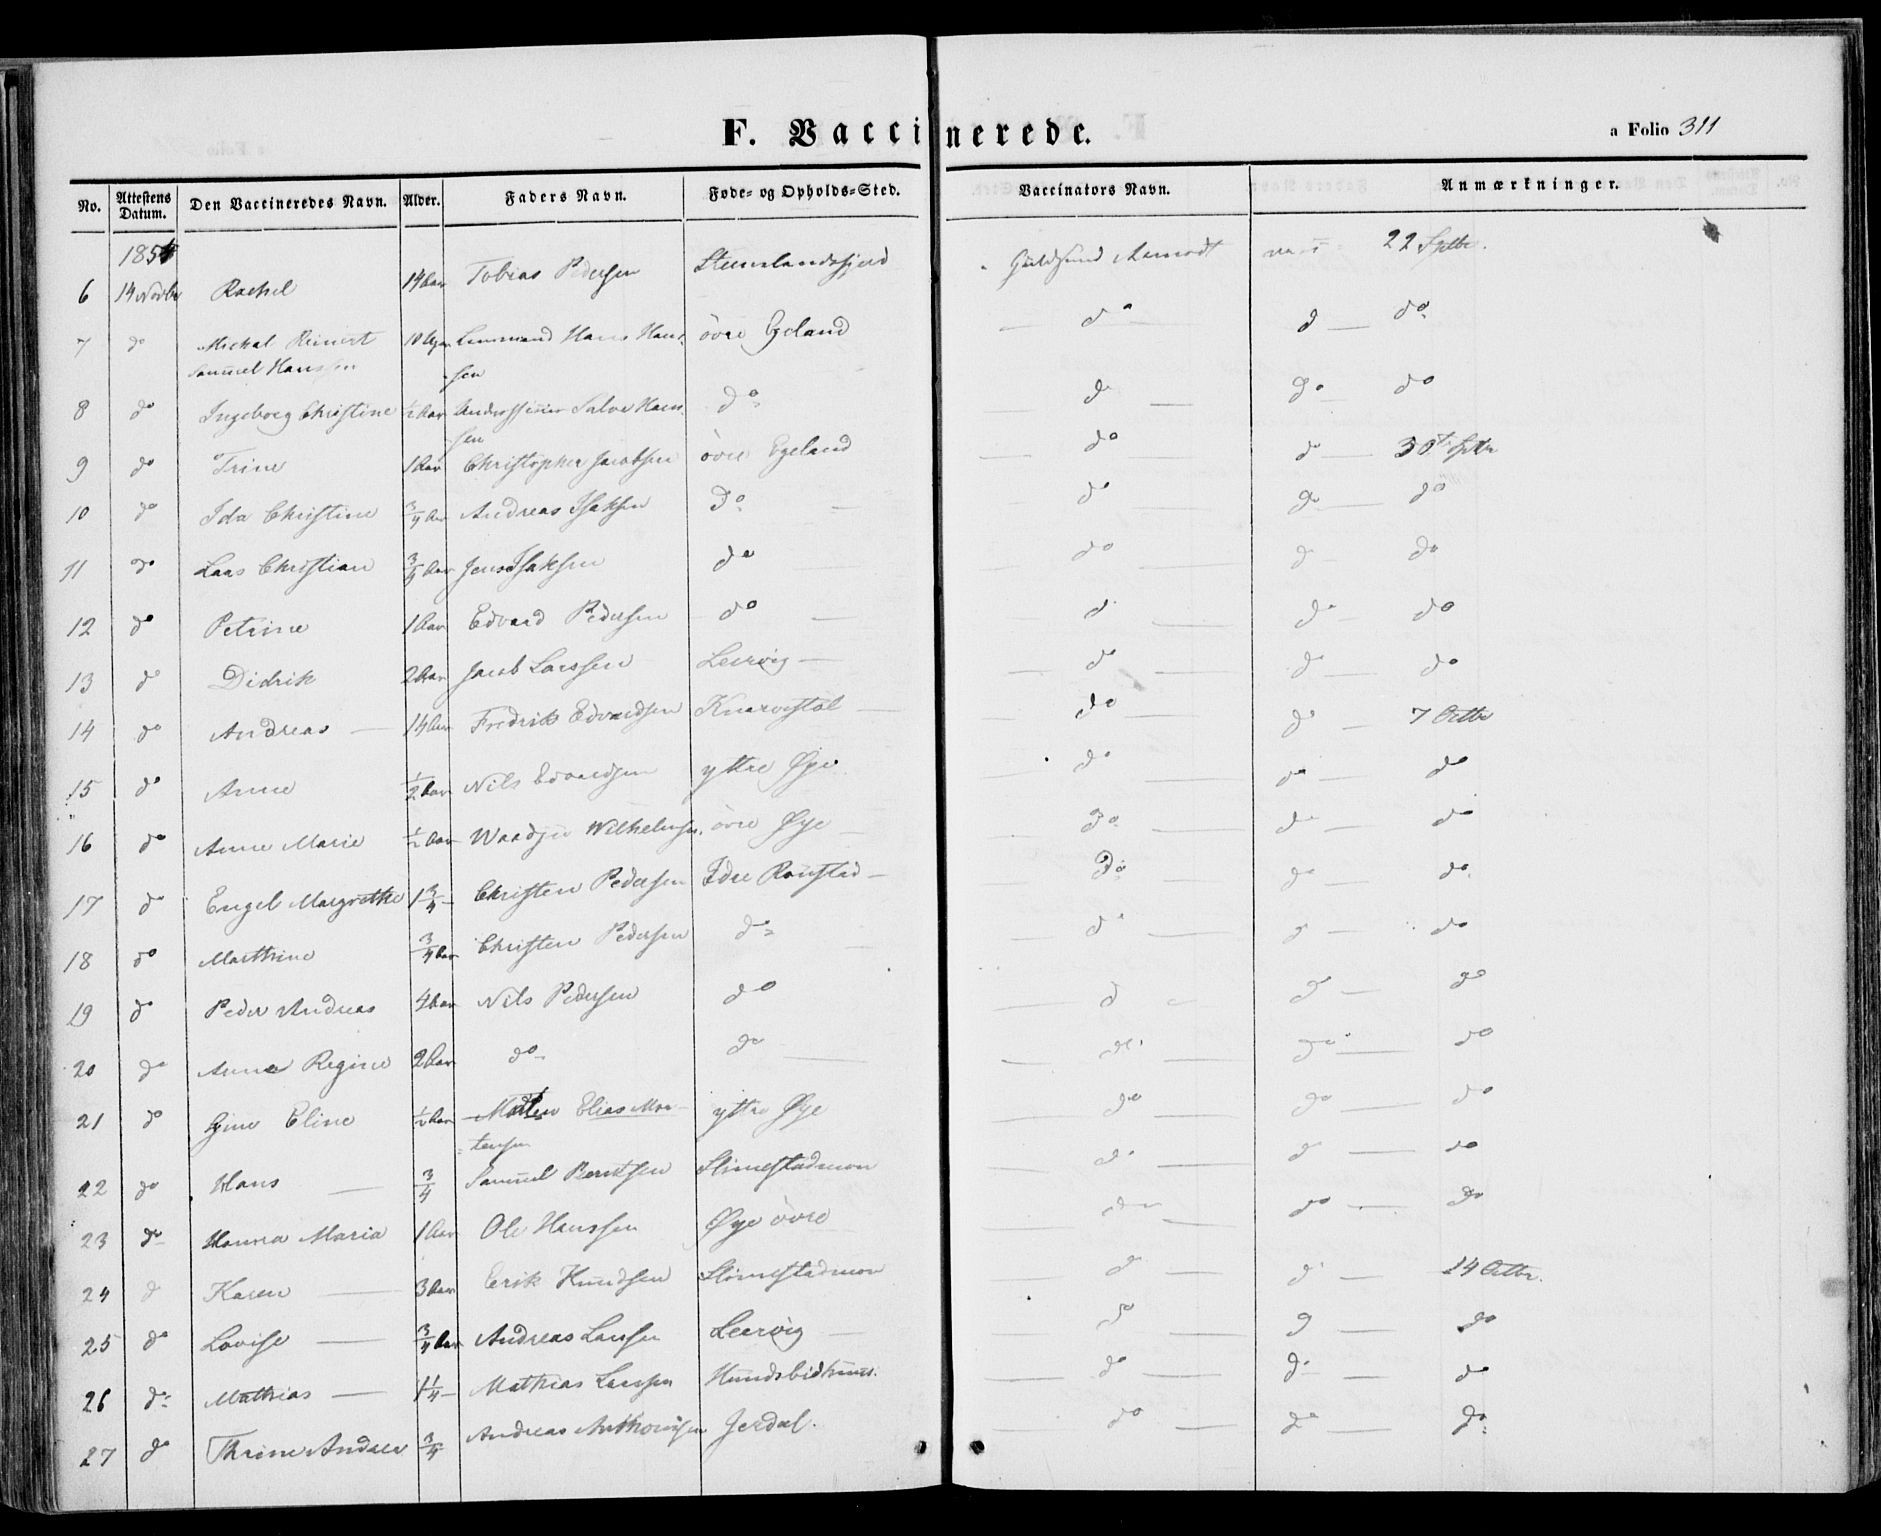 F. Vaccinerede.
a Folio 311
No. Attestens Datum. Den Vaccineredes Navn. Alder. Faders Navn. Føde- og Opholds-Sted. Vaccinators Navn. Anmærkninger.
1854
6 14 Novbr Rachel 14 Aar Tobias Pedersen Steenslandsfjeld Guldsmed Aamodt 22 Sptbr.
7 do Michal Reinert Samuel Hanssen 10 Hans Hanssen övre Egeland do d do
8 do Ingeborg Christine ½ Aar Salve Hanssen do d do do
9 do Trine 1 Aar Christopher Jacobsen övre Egeland do do 30 Sptbr
10 do Ida Christine ¾ Aar Andreas Isaksen do do do do
11 do Laas Christian ¾ Aar Jens Isaksen do do d do
12 do Petrine 1 Aar Edvard Pedersen do d do do
13 do Didrik 2 Aar Jacob Larssen Leervig do d do
14 do Andreas 14 Aar Fredrik Edvardsen Knarvestøl do do 7 Octbr
15 do Anne ½ Aar Nils Edvardsen yttre Øye do do do
16 do Anne Marie ½ Aar Wilhelmsen övre Øye do do do
17 do Engel Margrethe 1¾ Christen Pedersen do do do
18 do Marthine ¾ Aar Christen Pedersen do d d do
19 do Peder Andreas 4 Aar Nils Pedersen do d do do
20 do Anne Regine 2 Aar do do do do do
21 do Gine Eline ½ Aar Elias Mortensen yttre Øye do do do
22 do Hans ¾ Samuel Berntsen Slimestadmoen do d do
23 do Hanna Maria 1 Aar Ole Hanssen Øye övre do do do
24 d Karen 3 Aar Erik Knudsen Slimestadmoen d d 14 Octbr.
25 do Lovise ¾ Aar Andreas Larssen Leervig do d do
26 do Mathias 1¼ Mathias Larssen do do do
27 do Thrine Andrea ¾ Andreas Anthonisen Jerdal. do do do